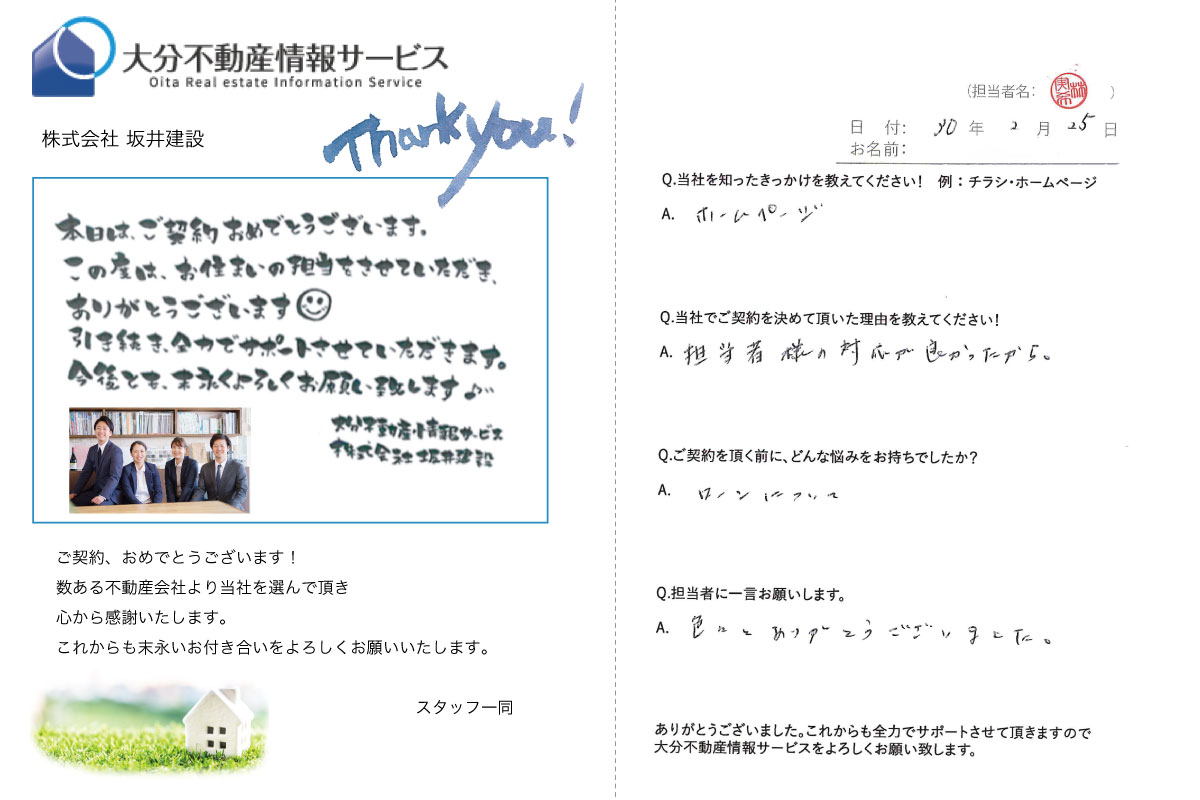 大分不動産情報サービス
Oita Real estate Information Service
Thank you!
株式会社 坂井建設
本日は、ご契約おめでとうございます。
この度は、お住まいの担当をさせていただき、
ありがとうございます
引き続き、全力でサポートさせていただきます。
今後とも、末永くよろしくお願い致します♪
大分不動産情報サービス
株式会社坂井建設
ご契約、おめでとうございます！
数ある不動産会社より当社を選んで頂き
心から感謝いたします。
これからも末永いお付き合いをよろしくお願いいたします。
スタッフ一同
(担当者名: )
日 付: 30 年 2 月 25 日
お名前:
Q.当社を知ったきっかけを教えてください! 例：チラシ・ホームページ
A. ホームページ
Q.当社でご契約を決めて頂いた理由を教えてください!
A. 担当者様の対応が良かったから。
Q.ご契約を頂く前に、どんな悩みをお持ちでしたか?
A. ローンについて
Q.担当者に一言お願いします。
A. 色々とありがとうございました。
ありがとうございました。これからも全力でサポートさせて頂きますので
大分不動産情報サービスをよろしくお願い致します。